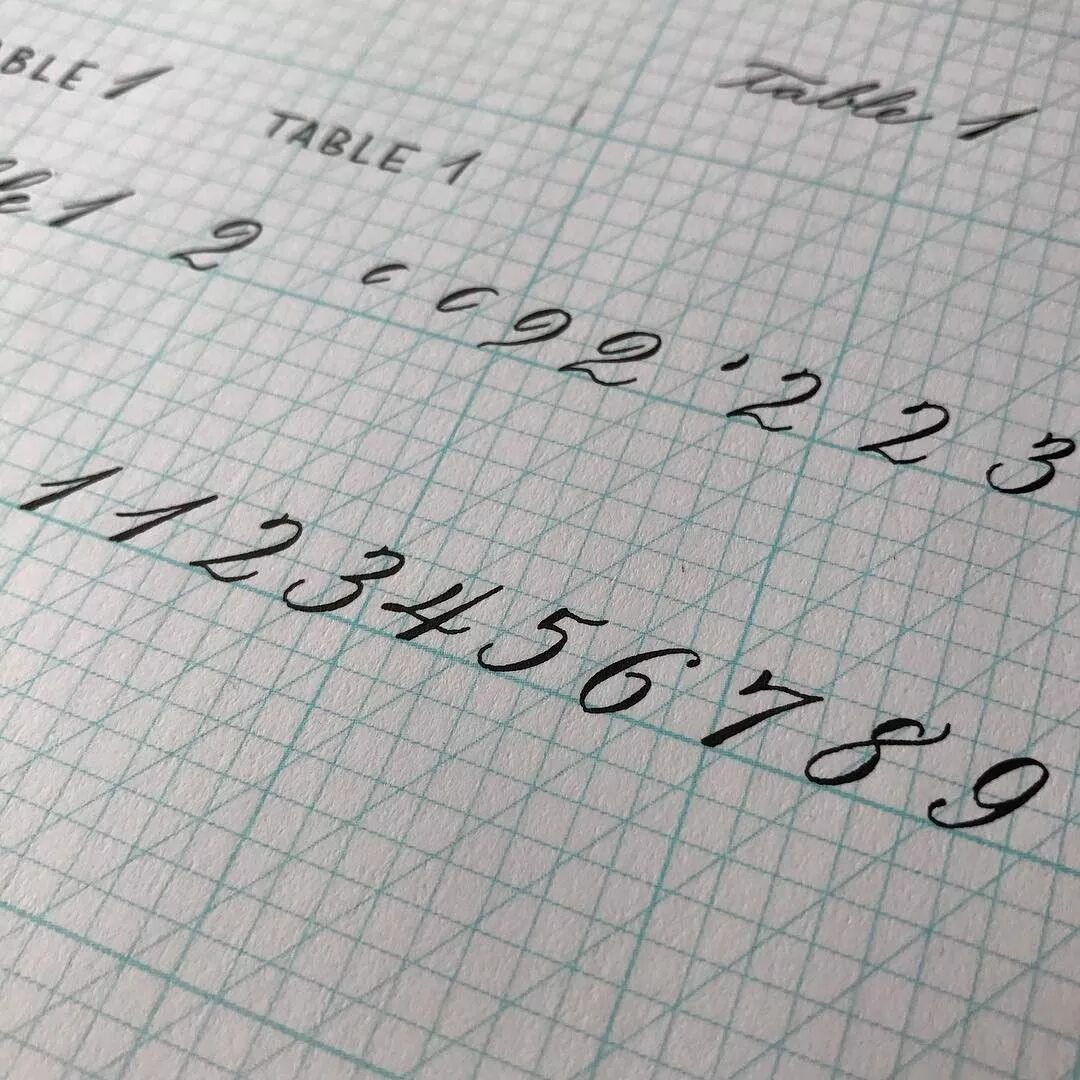 TABLE 1 TABLE 1 Table 1
1 2 2 2 2 2 3
1 1 2 3 4 5 6 7 8 9